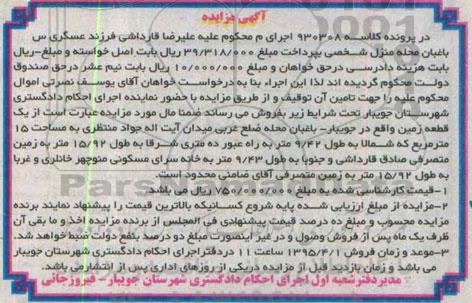 آگهی مزایده
در پرونده کلاسه ۹۳۰۳۰۸ اجرای م محکوم علیه علیرضا قارداشی فرزند عسگری س
باغبان محله منزل شخصی بپرداخت مبلغ ۳۹/۳۱۸/۰۰۰ ریال بابت اصل خواسته و مبلغ-ریال
بابت هزینه دادرسی درحق خواهان و مبلغ ۱۰/۰۰۰/۰۰۰ ریال بابت نیم عشر درحق صندوق
دولت محکوم گردیده اند لذا این اجراء بنا به درخواست خواهان آقای یوسف نصرتی اموال
محکوم علیه را جهت تامین آن توقیف و از طریق مزایده با حضور نماینده اجرای احکام دادگستری
شهرستان جویبار تحت شرایط زیر بفروش می رساند ضمنا مال مورد مزایده عبارت است از یک
قطعه زمین واقع در جویبار- باغبان محله ضلع غربی میدان آیت اله جواد منتظری به مساحت ۱۵
مترمربع که شمالا به طول ۹/۴۲ متر به راه عبور ده متری شرقا به طول ۱۵/۹۲ متر به زمین
متصرفی صادق قارداشی و جنوبا به طول ۹/۴۳ متر به خانه سرای مسکونی منوچهر خاتلری و غربا
به طول ۱۵/۹۲ متر به زمین متصرفی آقای ضامنی محدود است.
۱-قیمت کارشناسی شده به مبلغ ۷۵۰/۰۰۰/۰۰۰ ریال می باشد.
۲-مزایده از مبلغ ارزیابی شده پایه شروع کسانیکه بالاترین قیمت را پیشنهاد نمایند برنده
مزایده محسوب و مبلغ ده درصد قیمت پیشنهادی فی المجلس از برنده مزایده اخذ و ما بقی آن
ظرف یک ماه پس از فروش وصول و در غیر اینصورت مبلغ ده درصد بنفع دولت ضبط خواهد شد.
۳-موعد و زمان فروش ۱۳۹۵/۴/۱ ساعت ۱۱ دردفتراجرای احکام دادگستری شهرستان جویبار
می باشد و زمان بازدید قبل از مزایده دریکی از روزهای اداری پس از انتشارمی باشد.
مدیردفترشعبه اول اجرای احکام دادگستری شهرستان جویبار- فیروزجائی